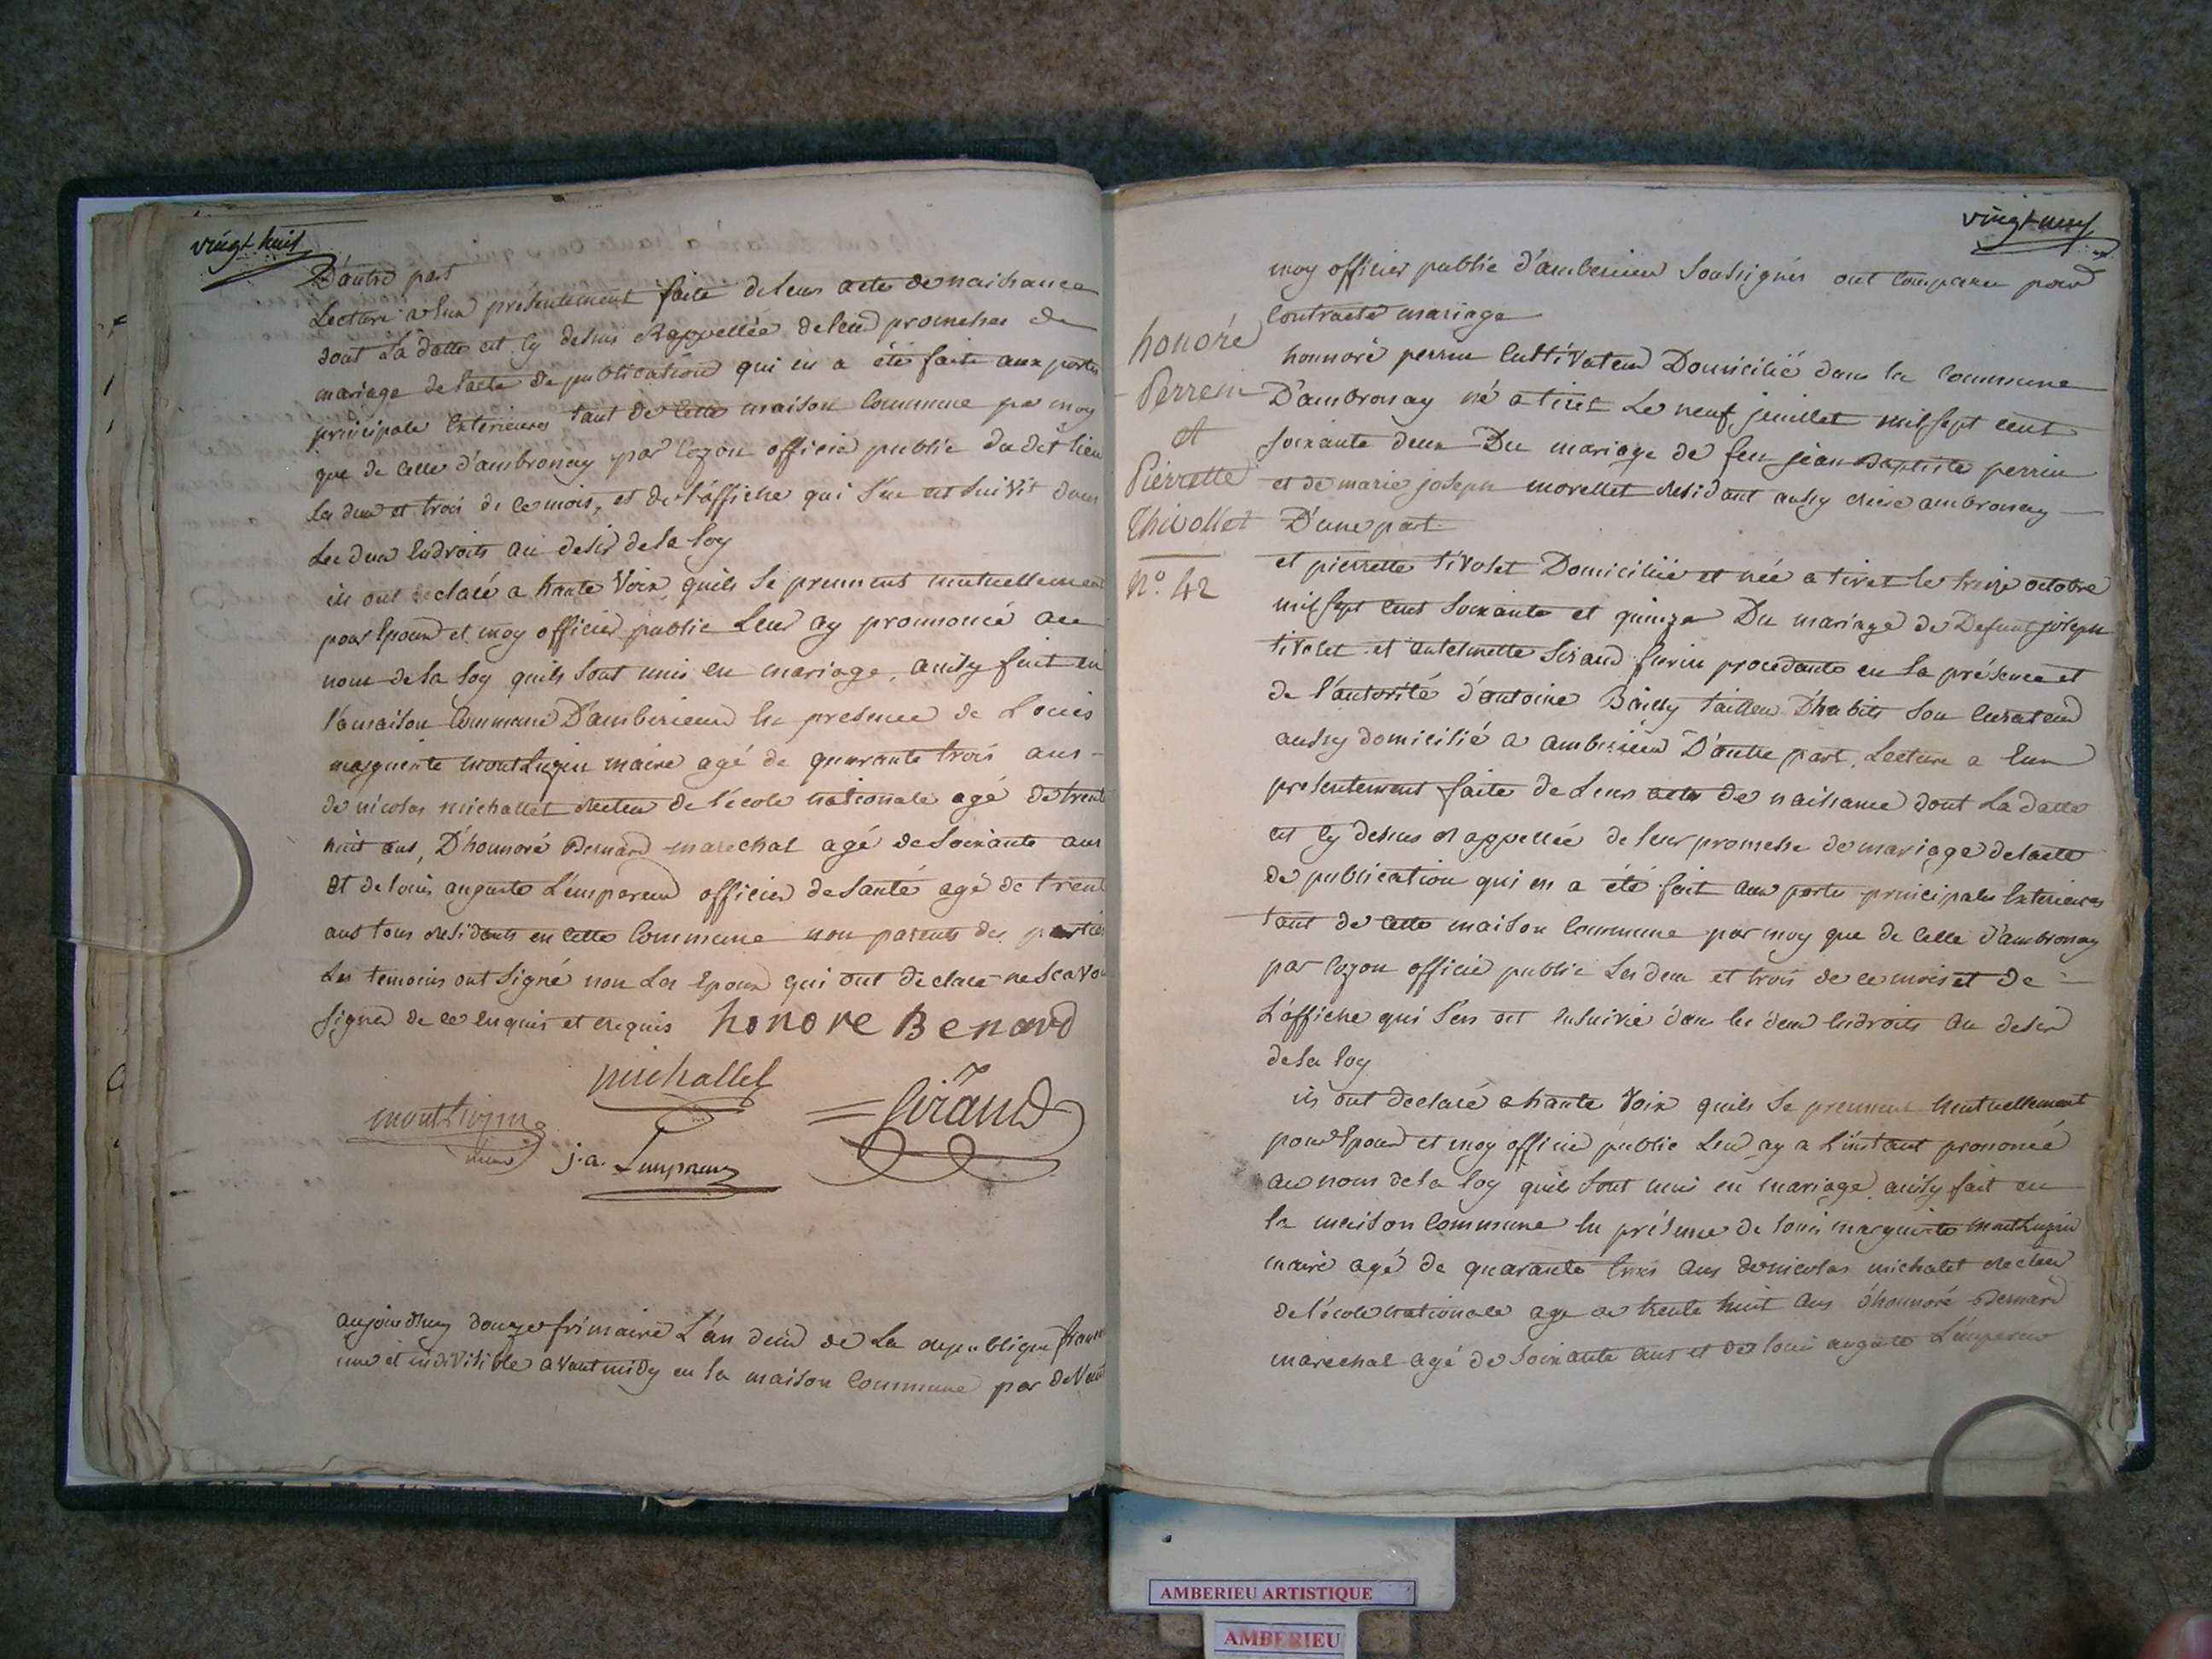 vingt huit
D'autre part
Lecture a Eux présentement faite de leurs acte de naissance
dont La datte est Cy dessus Rappellée de leur promesses de
mariage de l'acte de publication qui en a été faite aux portes
principale Exterieures tant de Cette maison Commune par moy
que de Celle d'ambronay par Cozon officier public du dit lieu
Les deux et trois de Ce mois, et de l'affiche qui S'en est suivit dans
Les deux Endroits au desir de la loy
ils ont declaré a haute Voix, quils Se prennent mutuellement
pour Epoux et moy officier public Leur ay prononcé au
nom de la loy quils Sont unis en mariage, ainsy fait en
la maison Commune D'amberieux En presence de Louis
marguerite montluzin maire agé de quarante trois ans
de nicolas michallet Recteur de l'école nationale agé de trente
huit ans, D'honnoré Bernard marechal agé de Soixante ans
Et de louis auguste L'empereur officier de Santé agé de trente
ans tous Residents en Cette Commune non parents des parties
Les temoins ont Signé non Les Epoux qui ont declaré ne Scavoir
Signer de Ce Enquis et Requis honore Benard
michallet
montluzin
maire
j.a. Lempereur
Girand
aujourdhuy douze frimaire L'an deux de La Republique francaise
une et indivisible avant midy en la maison Commune par devant
vingt neuf
moy officier public d'amberieux Soussignés ont Comparu pour
Contracter mariage
honoré
Perrein
et
Pierrette
Thivollet
N.o 42
honnoré perrin Cultivateur Domicilié dans la Commune
D'ambronay né a tiret Le neuf juillet mil sept cent
soixante deux Du mariage de feu jean Baptiste perrin
et de marie joseph morellet Residant aussy Riere ambronay
D'une part
et pierrette tivolet Domiciliée et née a tiret le treize octobre
mil sept cent Soixante et quinze Du mariage de Defunt joseph
tivolet et antelmette Siraud procedante en la présence et
de l'autorité d'antoine Bailly tailleur D'habits Son Curateur
aussy domicilié a amberieux D'autre part, Lecture a Eux
presentement faite de Leurs acte de naissance dont La datte
est Cy dessus Rappellée de leur promesse de mariage de l'acte
de publication qui en a été fait aux portes principales Exterieures
tant de Cette maison Commune par moy que de Celle d'ambronay
par Cozon officier public Les deux et trois de Ce mois et de
L'affiche qui S'en est Ensuivie dans les deux Endroits au desir
de la loy
ils ont declaré a haute Voix quils Se prennent mutuellement
pour Epoux et moy officier public Leur ay a L'instant prononcé
au nom de la loy quils Sont unis en mariage ainsy fait en
la maison Commune En présence de louis marguerite montluzin
maire agé de quarante trois ans de nicolas michalet Recteur
de l'école nationale agé de trente huit ans d'honnoré Bernard
marechal agé de Soixante ans et de louis auguste L'empereur
AMBERIEU ARTISTIQUE
AMBERIEU